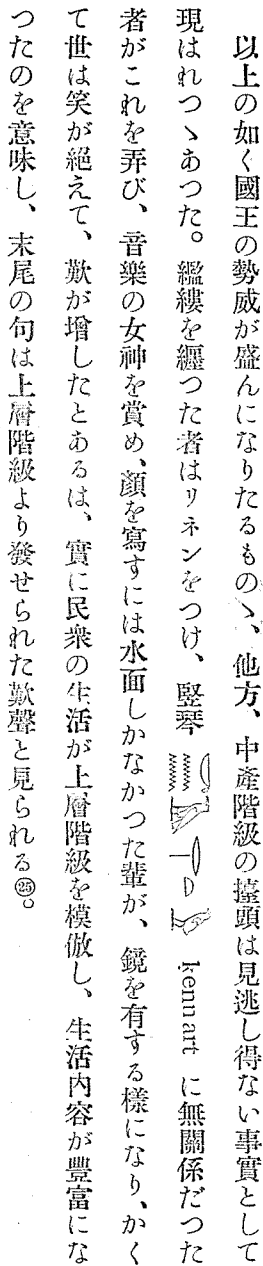 以上の如く國王の勢威が盛んになりたるものゝ、他方、中產階級の擡頭は見逃し得ない事實として
現はれつゝあつた。襤縷を纒つた者はリネンをつけ、竪琴 ḳennart に無關係だつた
者がこれを弄び、音樂の女神を賞め、顏を寫すには水面しかなかつた輩が、鏡を有する樣になり、かく
て世は笑が絕えて、歎が增したとあるは、實に民衆の生活が上層階級を模倣し、生活內容が豐富にな
つたのを意味し、末尾の句は上層階級より發せられた歎聲と見られる㉕。